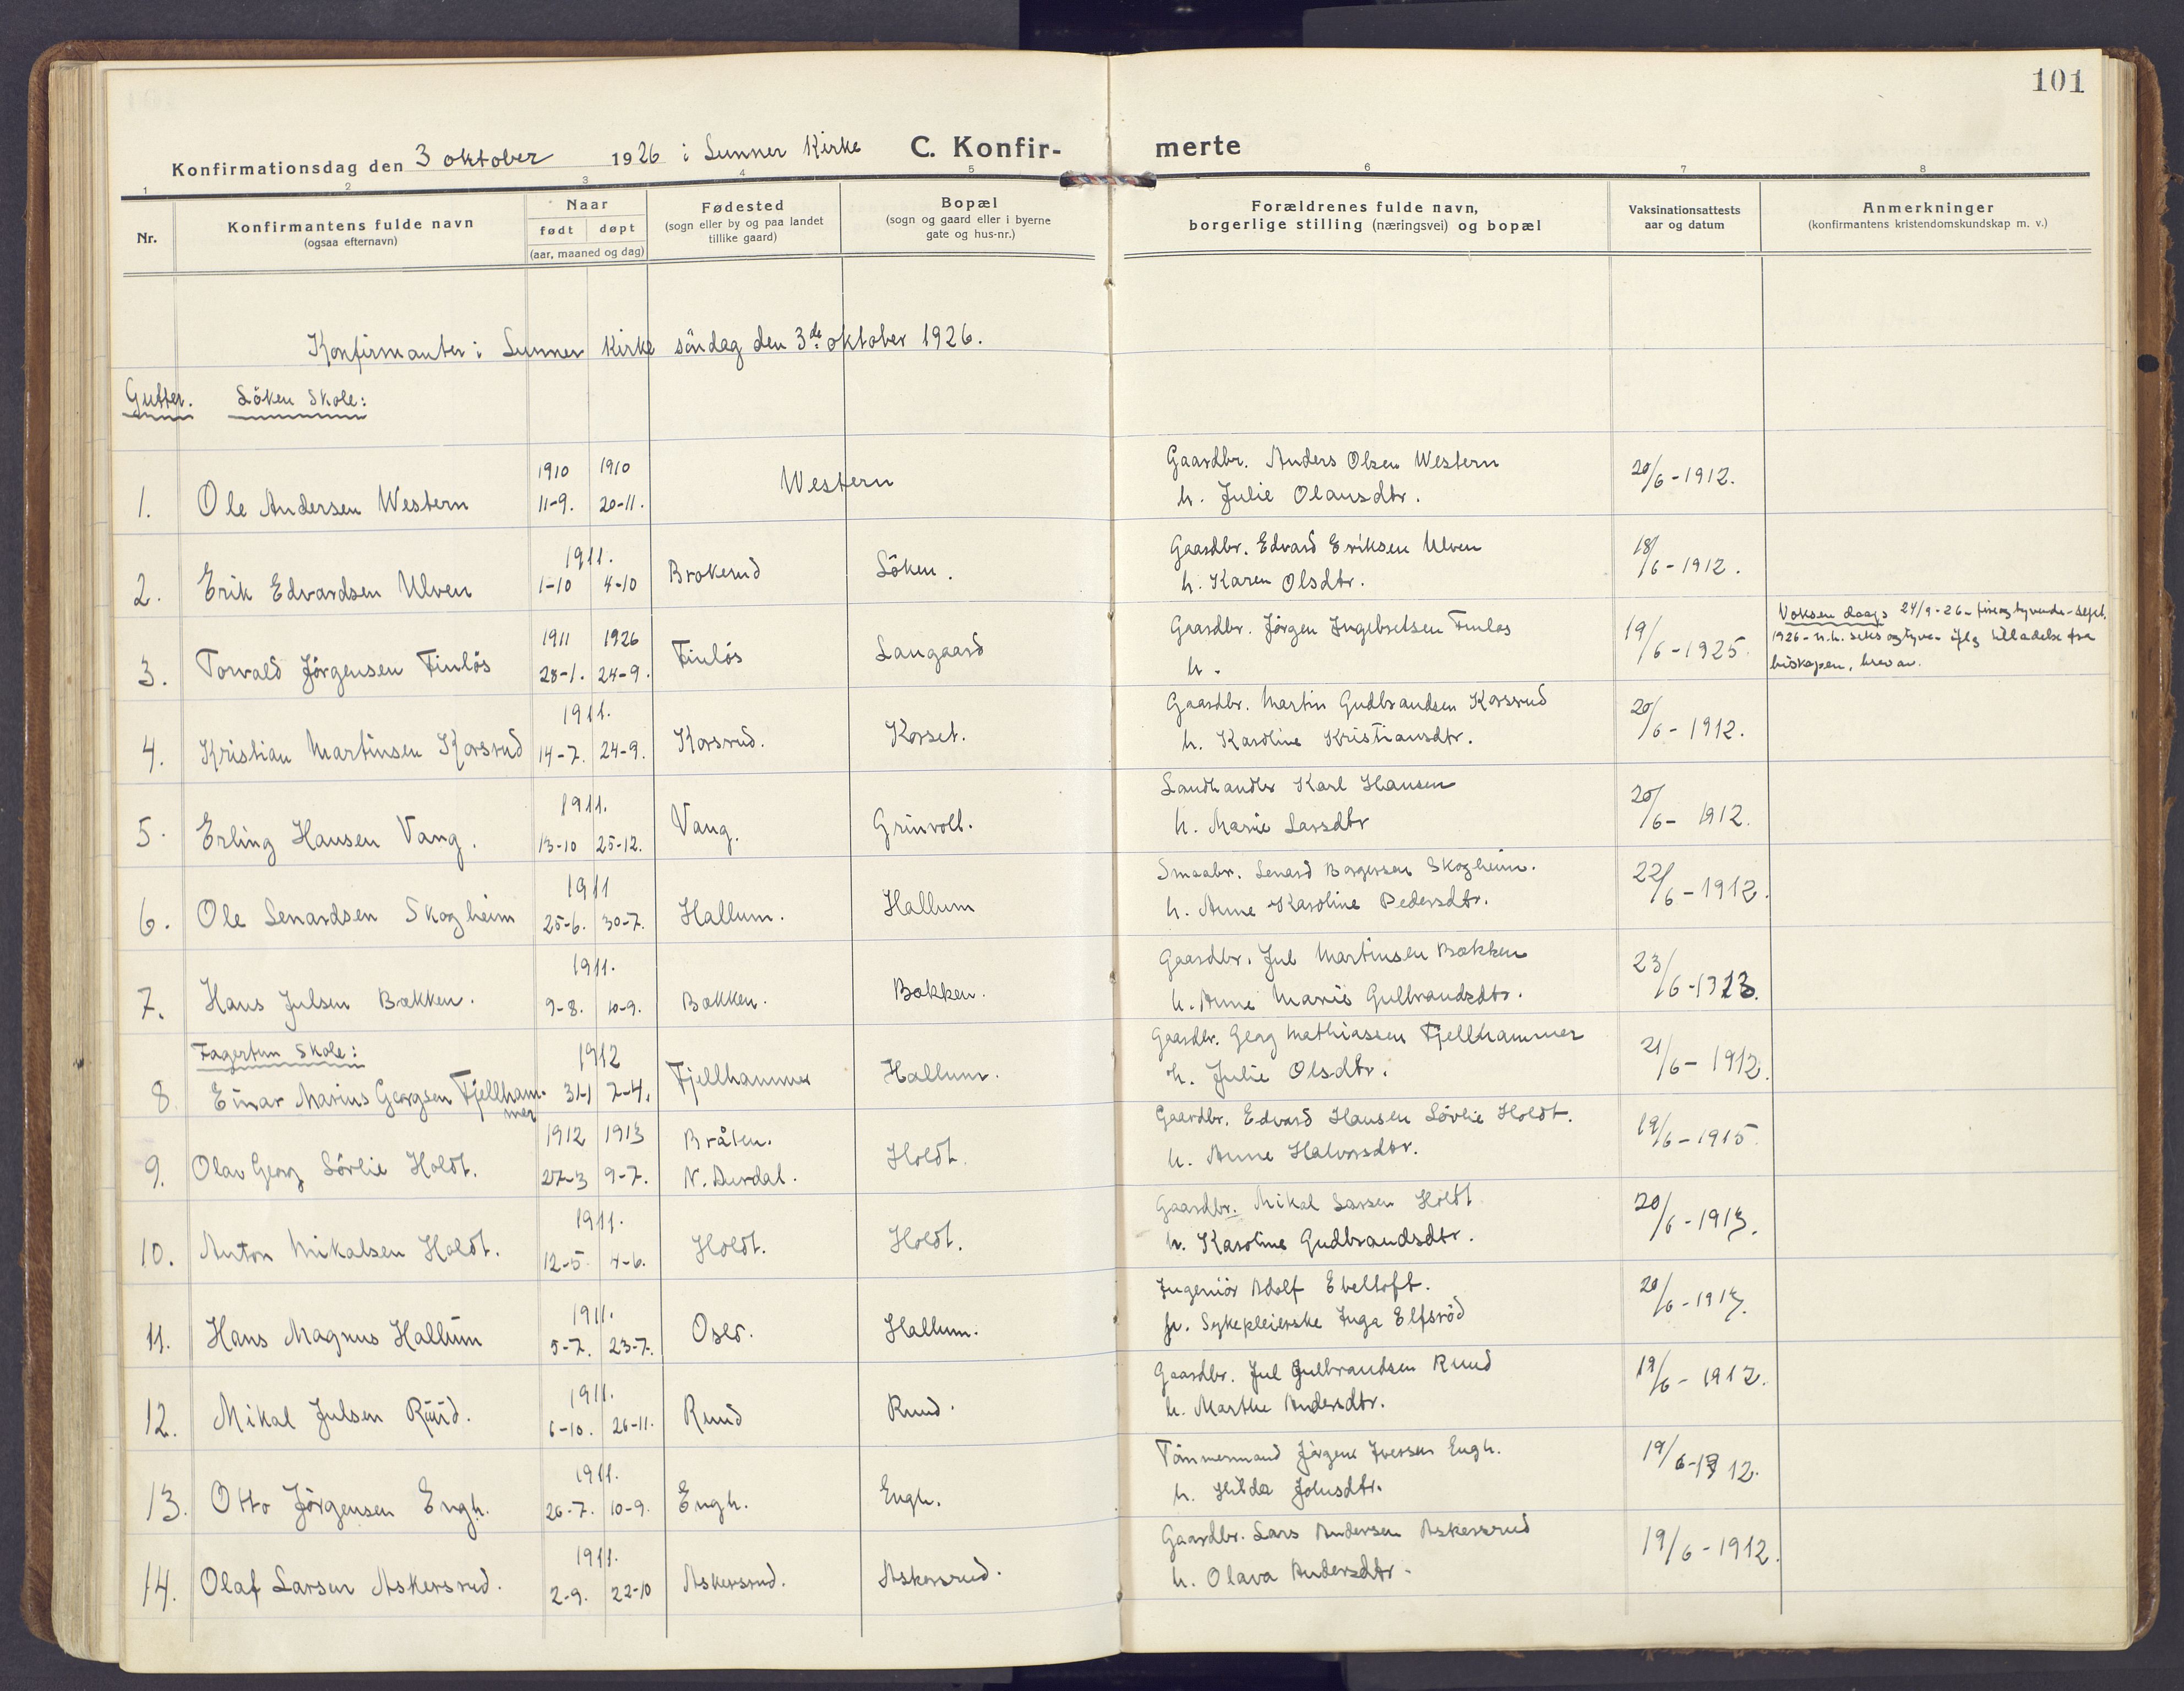 101
Konfirmationsdag den 3 oktober 1926 i Lunner Kirke C. Konfir- merte
1 2 3 4 5 6 7 8
Nr.
Konfirmantens fulde navn
(ogsaa efternavn)
Naar
født døpt
(aar, maaned og dag)
Fødested
(sogn eller by og paa landet
tillike gaard)
Bopæl
(sogn og gaard eller i byerne
gate og hus-nr.)
Forældrenes fulde navn,
borgerlige stilling (næringsvei) og bopæl
Vaksinationsattests
aar og datum
Anmerkninger
(konfirmantens kristendomskundskap m. v.)
Konfirmanter i Lunner Kirke söndag den 3de oktober 1926.
Gutter. Löken Skole:
1910 1910 Gaardbr. Anders Olsen Western
1. Ole Andersen Western 11-9. 20-11. Western 20/6-1912.
h. Julie Olausdtr.
1911. Gaardbr. Edvard Eriksen Ulven
2. Erik Edvardsen Ulven 1-10 4-10 Brokerud Löken. 18/6-1912.
h. Karen Olsdtr.
1911 1926 Gaardbr. Jörgen Ingebretsen Finlös
3. Torvald Jörgensen Finlös 28-1. 24-9. Finlös Langaard 19/6-1925.
h.
Voksen daap 24/9-26- fireogtyvende-sept.
1926- n.h. seksogtyve- iflg tilladelse fra
biskopen, brev av.
1911. Gaardbr. Martin Gudbrandsen Korsrud
4. Kristian Martinsen Korsrud 14-7. 24-9. Korsrud. Korset. 20/6-1912.
h. Karoline Kristiansdtr.
1911. Landhandler Karl Hansen
5. Erling Hansen Vang. 13-10 25-12. Vang. Grinvoll. 20/6-1912.
h. Marie Larsdtr
1911 Smaabr. Lenard Borgersen Skogheim.
6. Ole Lenardsen Skogheim 25-6. 30-7. Hallum. Hallum 22/6-1912.
h. Anne Karoline Pedersdtr.
1911. Gaardbr. Jul Martinsen Bakken
7. Hans Julsen Bækken. 9-8. 10-9. Bakken. Bakken. 23/6-1923.
h. Anne Marie Gulbrandsdtr.
Fagertun Skole:
1912 Gaardbr. Georg Mathiassen Fjellhammer
8. Einar Marius Georgsen Fjellham- 31-1 7-4. Fjellhammer Hallum. 21/6-1912.
mer
h. Julie Olsdtr.
1912 1913 Bråten. Gaardbr. Edvard Hansen Lövlie Holdt.
9. Olav Georg Lövlie Holdt. 27-3 9-7. N. Aurdal. Holdt. 19/6-1915.
h. Anne Halvorsdtr.
1911. Gaardbr. Mikal Larsen Holdt
10. Anton Mikalsen Holdt. 12-5. 4-6. Holdt. Holdt. 20/6-1913.
h. Karoline Gudbrandsdtr.
1911. Ingeniör Adolf Ebeltoft.
11. Hans Magnus Hallum 5-7. 23-7. Oslo. Hallum. 20/6-1913.
h. Sykepleierske Inga Elfsröd
1911. Gaardbr. Jul Gulbrandsen Ruud
12. Mikal Julsen Ruud. 6-10. 26-11. Ruud Ruud. 19/6-1912.
h. Marthe Andersdtr.
1911. Tömmermand Jörgen Iversen Engh.
13. Otto Jörgensen Engh. 26-7. 10-9. Engh. Engh. 19/6-1912.
h. Hilda Johnsdtr.
1911. Gaardbr. Lars Andersen Askersrud
14. Olaf Larsen Askersrud. 2-9. 22-10 Askersrud. Askersrud. 19/6-1912.
h. Olava Andersdtr.